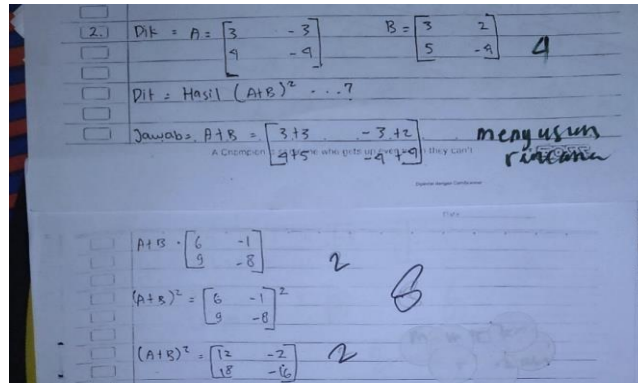 2. Dik = A = [3 -3 B = [3 2
4 -4] 5 -4] 4
Dit = Hasil (A+B)² ...?
Jawab = A+B = [3+3 -3+2 menyusun
4+5 -4+4] rincana
A Champion is someone who gets up even when they can't
A+B = [6 -1
9 -8] 2
(A+B)² = [6 -1]² 6
9 -8
(A+B)² = [12 -2 2
18 -16]